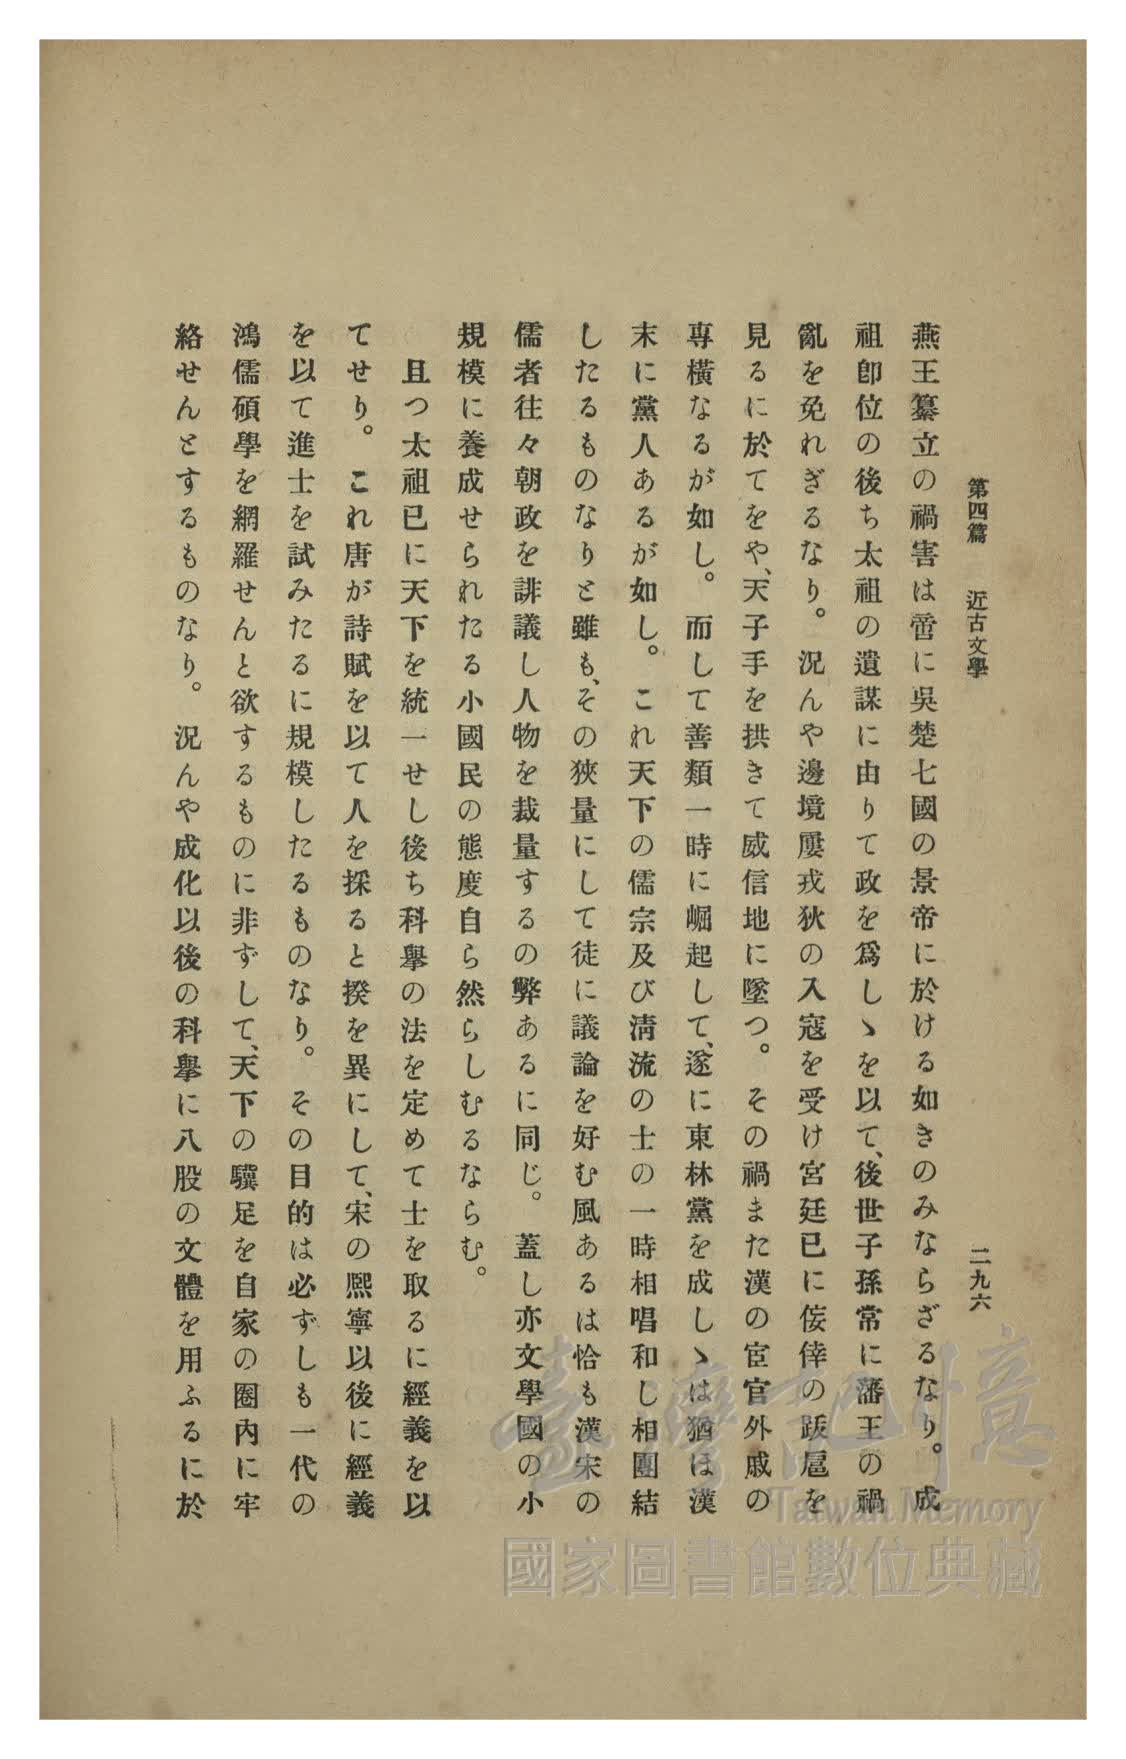 第四篇　近古文學　二九六
燕王纂立の禍害は啻に吳楚七國の景帝に於ける如きのみならざるなり。成
祖卽位の後ち太祖の遺謀に由りて政を爲しゝを以て、後世子孫常に藩王の禍
亂を免れざるなり。況んや邊境屢戎狄の入寇を受け宮廷已に佞倖の跋扈を
見るに於てをや、天子手を拱きて威信地に墜つ。その禍また漢の宦官外戚の
專橫なるが如し。而して善類一時に崛起して、遂に東林黨を成しゝは猶ほ漢
末に黨人あるが如し。これ天下の儒宗及び淸流の士の一時相唱和し相團結
したるものなりと雖も、その狹量にして徒に議論を好む風あるは恰も漢宋の
儒者往々朝政を誹議し人物を裁量するの弊あるに同じ。蓋し亦文學國の小
規模に養成せられたる小國民の態度自ら然らしむるならむ。
且つ太祖已に天下を統一せし後ち科擧の法を定めて士を取るに經義を以
てせり。これ唐が詩賦を以て人を採ると揆を異にして、宋の熙寧以後に經義
を以て進士を試みたるに規模したるものなり。その目的は必ずしも一代の
鴻儒碩學を網羅せんと欲するものに非ずして、天下の驥足を自家の圈內に牢
絡せんとするものなり。況んや成化以後の科擧に八股の文體を用ふるに於
臺灣記憶
Taiwan Memory
國家圖書館數位典藏